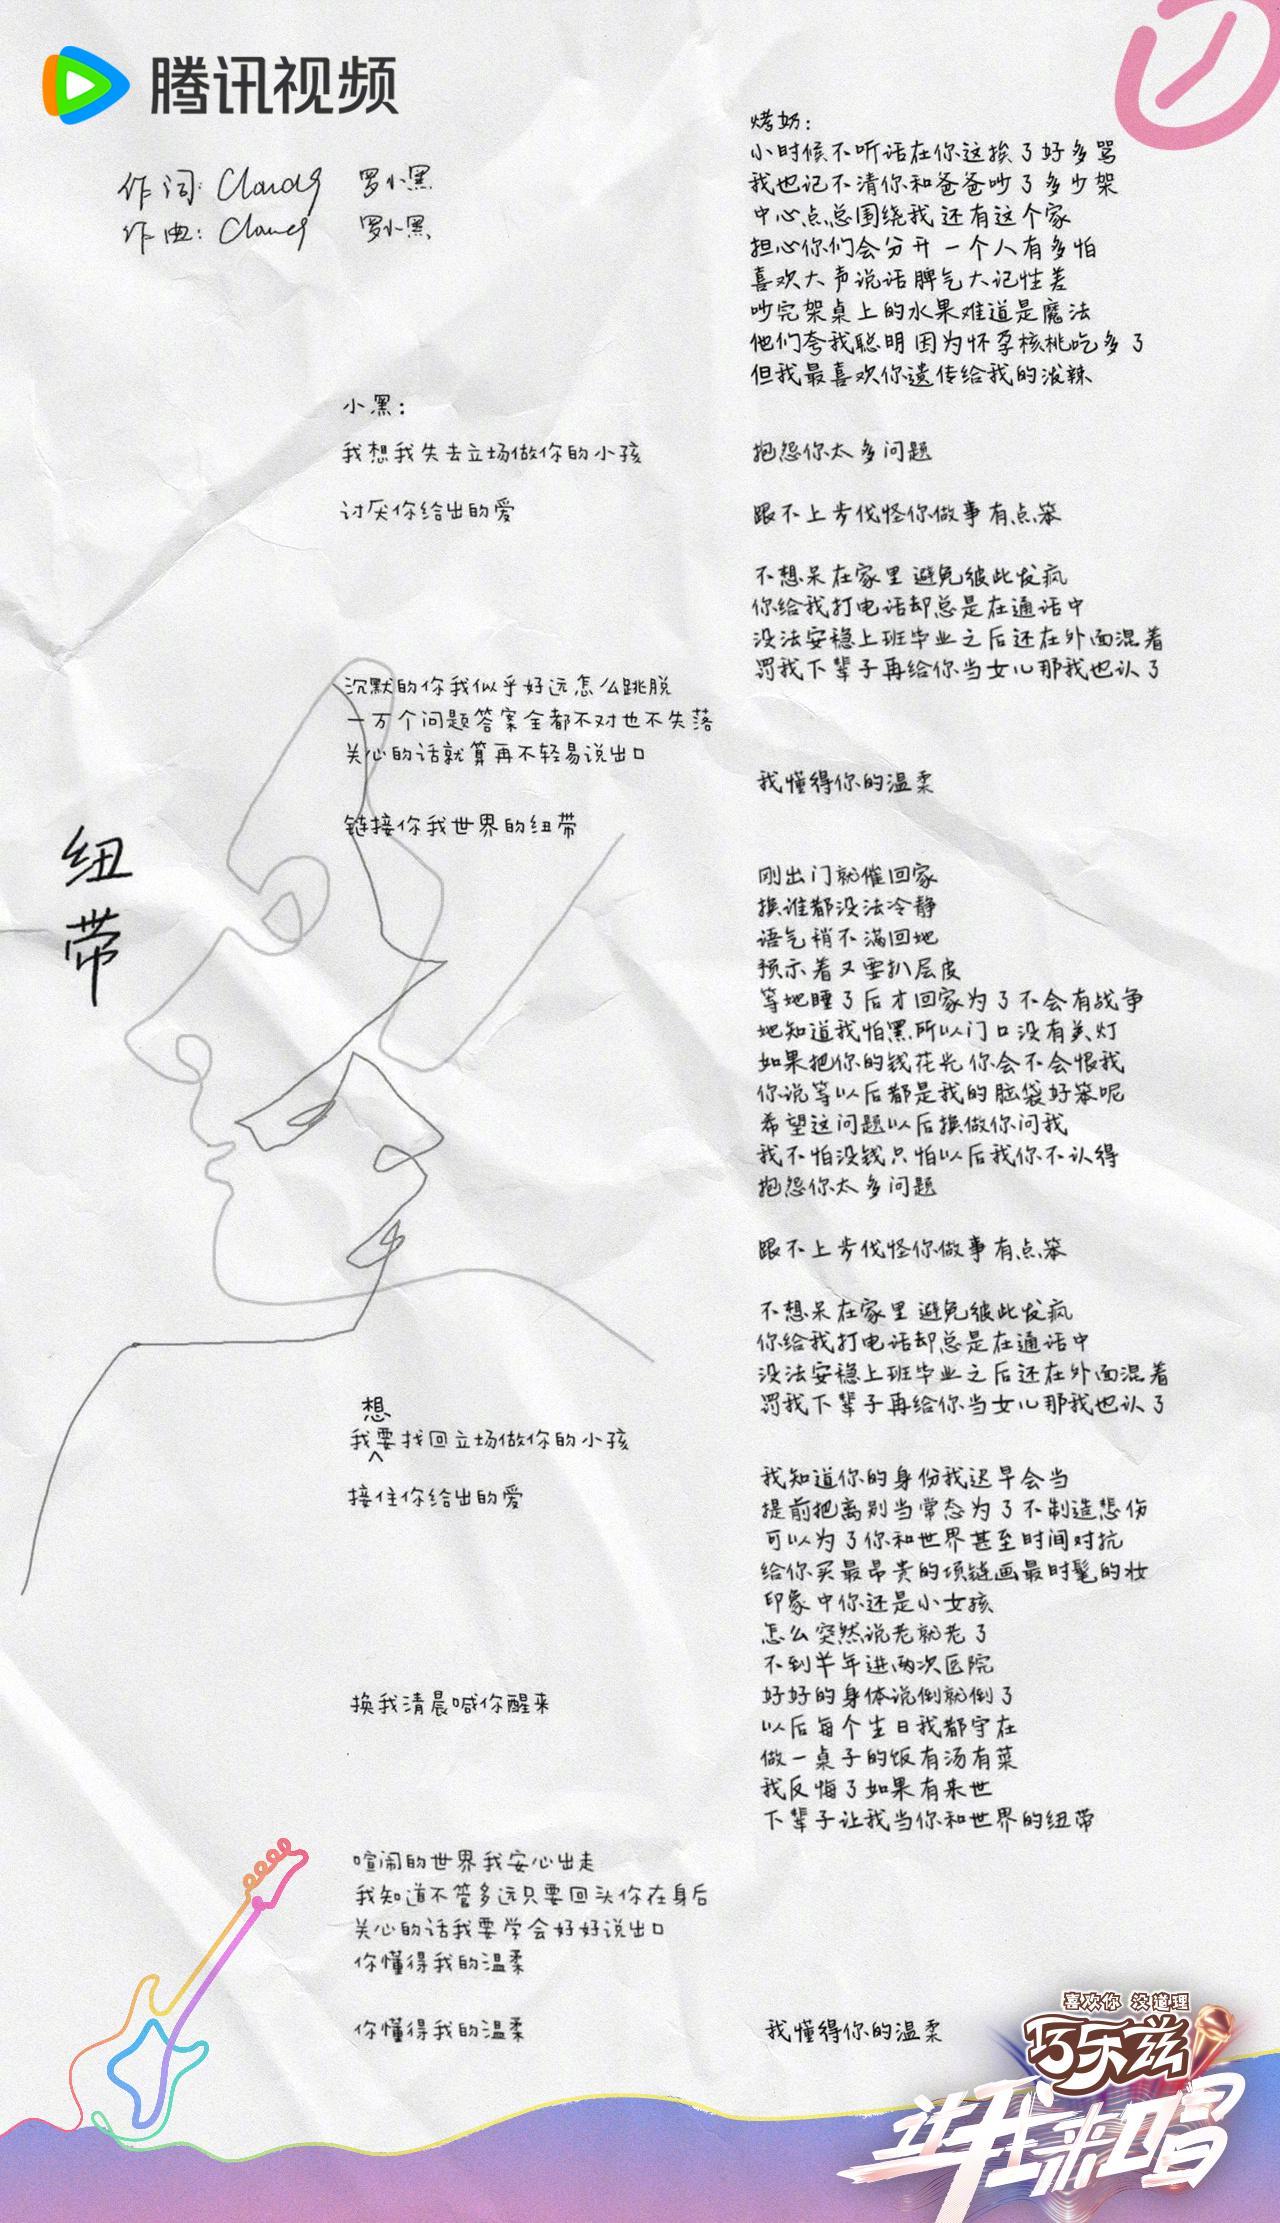 腾讯视频
作词: Cloud9 罗小黑
作曲: Cloud9 罗小黑
纽带
小黑:
我想我失去立场做你的小孩
讨厌你给出的爱
沉默的你我似乎好远怎么跳脱
一万个问题答案全都不对也不失落
关心的话就算再不轻易说出口
链接你我世界的纽带
想
我要找回立场做你的小孩
接住你给出的爱
换我清晨喊你醒来
喧闹的世界我安心出走
我知道不管多远只要回头你在身后
关心的话我要学会好好说出口
你懂得我的温柔
你懂得我的温柔
烤奶:
小时候不听话在你这挨了好多骂
我也记不清你和爸爸吵了多少架
中心点总围绕我还有这个家
担心你们会分开一个人有多怕
喜欢大声说话脾气大记性差
吵完架桌上的水果难道是魔法
他们夸我聪明因为怀孕核桃吃多了
但我最喜欢你遗传给我的泼辣
抱怨你太多问题
跟不上步伐怪你做事有点笨
不想呆在家里避免彼此发疯
你给我打电话却总是在通话中
没法安稳上班毕业之后还在外面混着
罚我下辈子再给你当女儿那我也认了
我懂得你的温柔
刚出门就催回家
换谁都没法冷静
语气稍不满回她
预示着又要扒层皮
等她睡了后才回家为了不会有战争
她知道我怕黑所以门口没有关灯
如果把你的钱花光你会不会恨我
你说等以后都是我的脑袋好笨呢
希望这问题以后换做你问我
我不怕没钱只怕以后我你不认得
抱怨你太多问题
跟不上步伐怪你做事有点笨
不想呆在家里避免彼此发疯
你给我打电话却总是在通话中
没法安稳上班毕业之后还在外面混着
罚我下辈子再给你当女儿那我也认了
我知道你的身份我迟早会当
提前把离别当常态为了不制造悲伤
可以为了你和世界甚至时间对抗
给你买最昂贵的项链画最时髦的妆
印象中你还是小女孩
怎么突然说老就老了
不到半年进两次医院
好好的身体说倒就倒了
以后每个生日我都守在
做一桌子的饭有汤有菜
我反悔了如果有来世
下辈子让我当你和世界的纽带
我懂得你的温柔
喜欢你 没道理
巧乐兹
斗我来唱